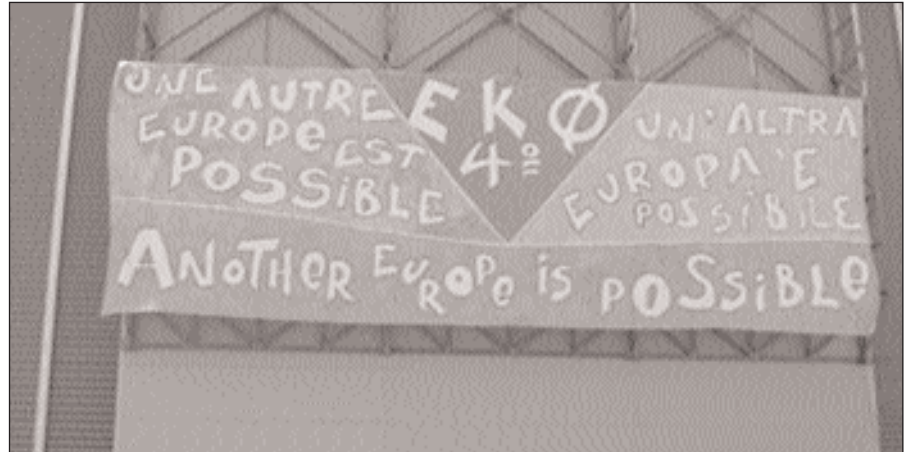 UNE AUTRE
EUROPe
EST
POSSiBLE
EKØ
4º
UN'ALTRA
EUROPA 'E
POSSiBiLE
ANoTHeR EUROPe iS POSSiBLe